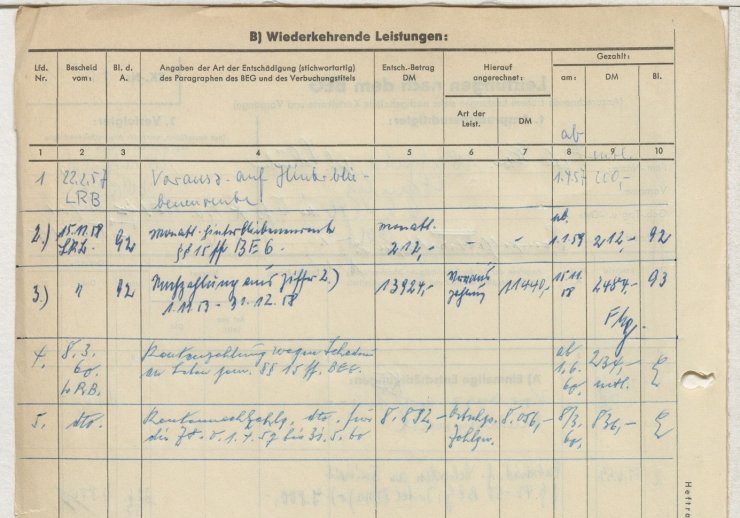 B) Wiederkehrende Leistungen:
Lfd. Nr.
Bescheid vom:
Bl. d. A.
Angaben der Art der Entschädigung (stichwortartig)
des Paragraphen des BEG und des Verbuchungstitels
Entsch.-Betrag DM
Hierauf angerechnet:
Art der Leist.
DM
Gezahlt:
am:
DM
Bl.
ab
mtl.
1 2 3 4 5 6 7 8 9 10
1 22.2.57 Vorausz. auf Hinterblie- 1.4.57 200,-
LRB benenrente!
monatl. ab
2.) 15.11.58 92 Monatl. Hinterbliebenenrente 212,- 1.1.59 212,- 92
§§ 15 ff BEG.
3.) " 92 Nachzahlung aus Ziffer 2.) 13924,- Voraus 11440,- 15.11. 2484,- 93
1.11.53 - 31.12.58 zahlung 58
4. 8.3. Rentenzahlung wegen Schaden ab 234,-
60. an Leben gem. §§ 15 ff. BEG. 1.6. mtl.
LRB. 60.
5. dto. Rentennachzahlg. dto. für 8.892,- 8.056,- 8/3. 836,-
die Zt. v. 1.4.57 bis 31.5.60 60.
Heftra